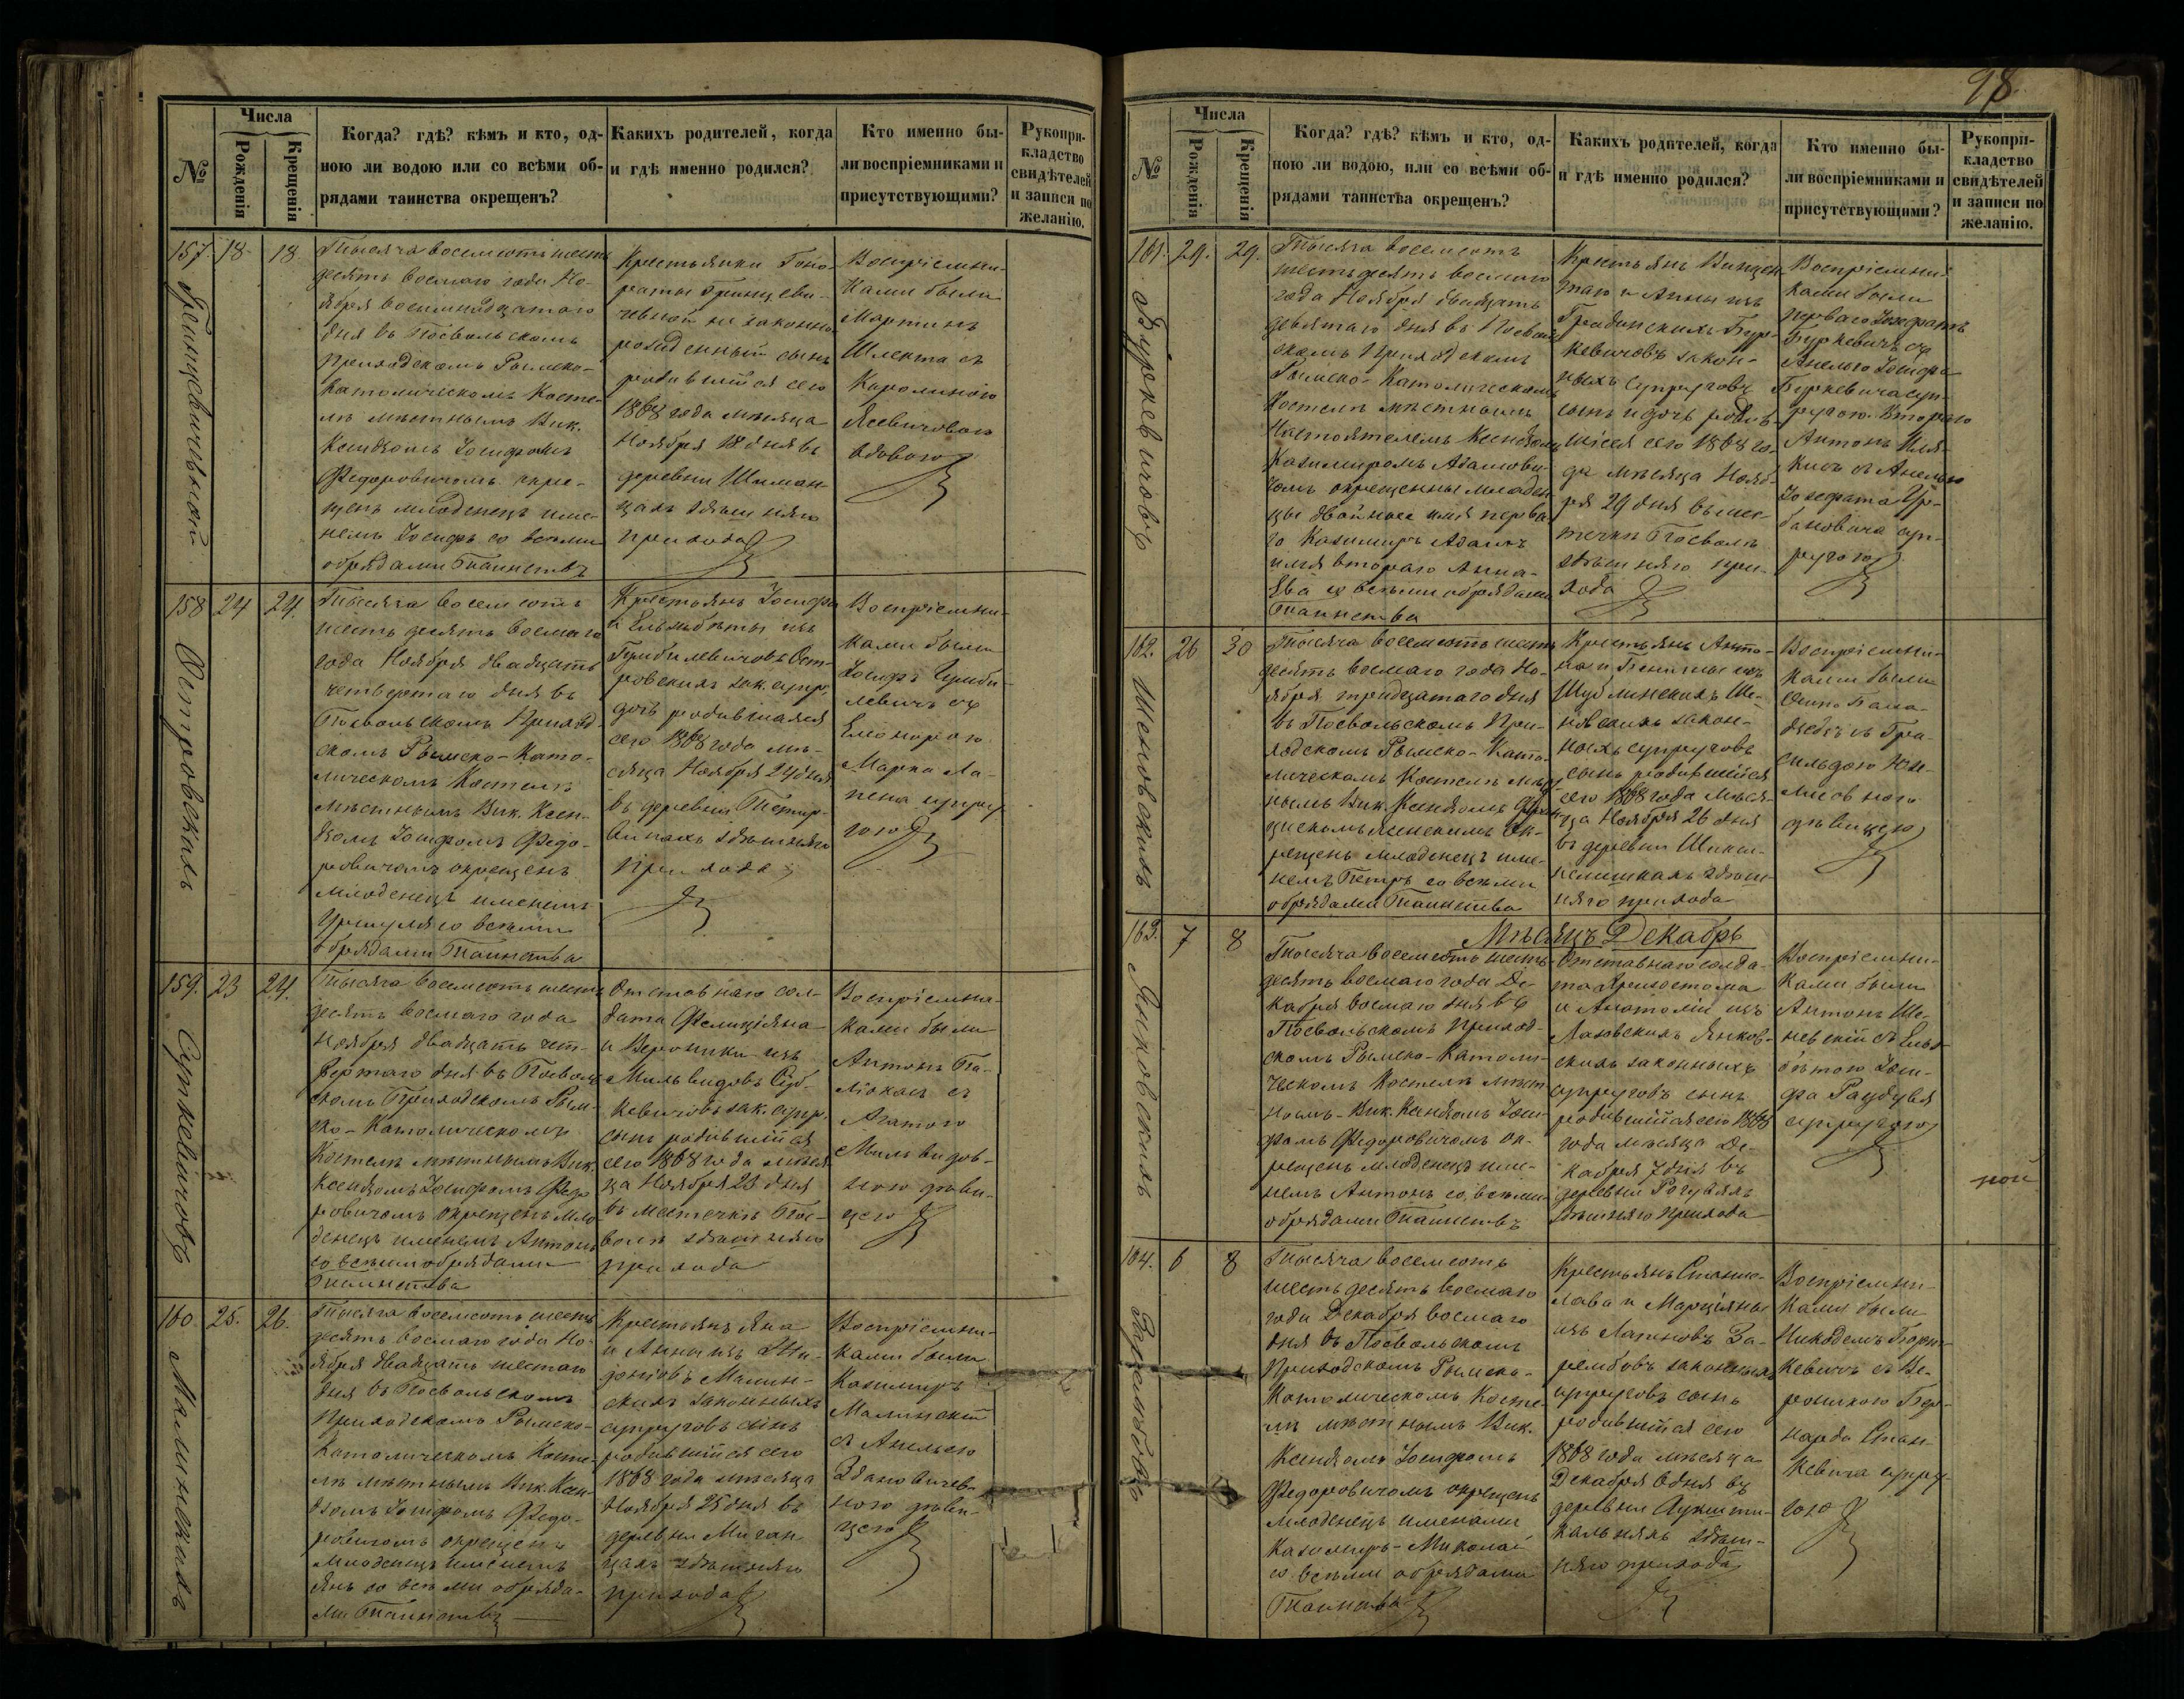 98.
№
Числа
Рожденія
Крещенія
Когда? гдѣ? кѣмъ и кто, од-
ною ли водою или со всѣми об-
рядами таинства окрещенъ?
Какихъ родителей, когда
и гдѣ именно родился?
Кто именно бы-
ли воспріемниками и
присутствующими?
Рукопри-
кладство
свидѣтелей
и записи по
желанію.
157. 18. 18
Тысяча восемсотъ шесть
десять восмаго года Но-
ября восемнадцатаго
дня въ Посвольскомъ
Приходскомъ Римско-
Католическомъ Косте-
лѣ мѣстнымъ Вик.
Ксендзомъ Іосифомъ
Федоровичомъ окре-
щенъ младенецъ име-
немъ Іосифъ со всѣми
обрядами Таинствъ
Крестьянки
не законно-
рожденный сынъ
родившійся сего
1868 года мѣсяца
Ноября 18 дня въ
деревни Шиман
цахъ здѣшняго
прихода
Воспріемни-
ками были
Мартинъ
Шлекта съ
Каролиною
вдовою
158 24 24.
Островскихъ
Тысяча восемсотъ
шесть десять восмаго
года Ноября двадцать
четвертаго дня въ
Посвольскомъ Приход-
скомъ Римско-Като-
лическомъ Костелѣ
мѣстнымъ Вик. Ксен-
дзомъ Іосифомъ Федо-
ровичомъ окрещенъ
младенецъ именемъ
Уршуля со всѣми
обрядами Таинства
Крестьянъ Іосифа
и Ельжбѣты изъ
Гумбилевичовъ Ост-
ровскихъ зак. супр.
дочь родившаяся
сего 1868 года мѣ-
сяца Ноября 24 дня
въ деревни
здѣшняго
прихода
Воспріемни-
ками были
Іосифъ Гумби-
левичъ съ
Елеонорою
Марка Ла-
пена супру
гою
159. 23 24.
Суткевичовъ
Тысяча восемсотъ шесть
десять восмаго года
Ноября двадцать чет-
вертаго дня въ Посволь
скомъ Приходскомъ Рим-
ско-Католическомъ
Костелѣ мѣстнымъ Вик.
Ксендзомъ Іосифомъ Федо
ровичомъ окрещенъ мла-
денецъ именемъ Антонъ
со всѣми обрядами
Таинства
Отставнаго сол-
дата Фелиціяна
и Вероники изъ
Мильвидовъ Сут-
кевичовъ зак. супр.
сынъ родившійся
сего 1868 года мѣся
ца Ноября 23 дня
въ мѣстечкѣ Пос-
волѣ здѣшняго
прихода
Воспріемни-
ками были
Антонъ Па-
люкасъ съ
Агатою
Мильвидов-
ною дѣви-
цею
160. 25. 26.
Малинскихъ
Тысяча восемсотъ шесть
десять восмаго года Но-
ября двадцать шестаго
дня въ Посвольскомъ
Приходскомъ Римско-
Католическомъ Косте-
лѣ мѣстнымъ Вик. Ксен-
дзомъ Іосифомъ Федо-
ровичомъ окрещенъ
младенецъ именемъ
Янъ со всѣми обряда-
ми Таинствъ
Крестьянъ Яна
и Анны изъ
Малин-
скихъ законныхъ
супруговъ сынъ
родившійся сего
1868 года мѣсяца
Ноября 25 дня въ
деревни Миган
цахъ здѣшняго
прихода
Воспріемни-
ками были
Казимиръ
Малинскій
съ Анелею
Здановичев-
ною дѣви-
цею
№
Числа
Рожденія
Крещенія
Когда? гдѣ? кѣмъ и кто, од-
ною ли водою, или со всѣми об-
рядами таинства окрещенъ?
Какихъ родителей, когда
и гдѣ именно родился?
Кто именно бы-
ли воспріемниками и
присутствующими?
Рукопри-
кладство
свидѣтелей
и записи по
желанію.
161. 29. 29.
Буркевичовъ
Тысяча восемсотъ
шесть десять восмаго
года Ноября двадцать
девятаго дня въ Посволь
скомъ Приходскомъ
Римско-Католическомъ
Костелѣ мѣстнымъ
Настоятелемъ Ксендзомъ
Казимиромъ Адамови-
чомъ окрещенны младен
цы двойнее имя перва
го Казимиръ Адамъ
имя втораго Анна-
Ева со всѣми обрядами
Таинства
Крестьянъ Винцен
таго и Анны изъ
Градинскихъ Бур-
кевичовъ закон-
ныхъ супруговъ
сынъ и дочь родив-
шіеся сего 1868 го-
да мѣсяца Нояб-
ря 29 дня въ мѣс-
течкѣ Посволѣ
здѣшняго при-
хода
Воспріемни-
ками были
перваго Іозефатъ
Буркевичъ съ
Анелею Іосифа
Буркевича суп-
ругою. Втораго
Антонъ
съ Анелею
Іозефата Ур-
бановича суп-
ругою
162. 26 30
Шеновскихъ
Тысяча восемсотъ шесть
десять восмаго года Но-
ября тридцатаго дня
въ Посвольскомъ При-
ходскомъ Римско-Като-
лическомъ Костелѣ мѣст
нымъ Вик. Ксендзомъ
ок-
рещенъ младенецъ име-
немъ Петръ со всѣми
обрядами Таинства
Крестьянъ Анто-
на и изъ
Шублинскихъ Ше-
новскихъ закон-
ныхъ супруговъ
сынъ родившійся
сего 1868 года мѣся-
ца Ноября 26 дня
въ деревни
здѣш-
няго прихода
Воспріемни-
ками были
дѣвицею
Мѣсяцъ Декабрь
163. 7 8
Янковскихъ
Тысяча восемсотъ шесть
десять восмаго года Де-
кабря восмаго дня въ
Посвольскомъ Приход-
скомъ Римско-Католи-
ческомъ Костелѣ мѣст
нымъ Вик. Ксендзомъ Іоси-
фомъ Федоровичомъ ок-
рещенъ младенецъ име-
немъ Антонъ со всѣми
обрядами Таинствъ
Отставнаго солда-
та Хризостома
и Анатоліи изъ
Янков-
скихъ законныхъ
супруговъ сынъ
родившійся сего 1868
года мѣсяца Де-
кабря 7 дня въ
деревни
здѣшняго прихода
Воспріемни-
ками были
Антонъ Ше-
невскій съ Ельж-
бѣтою Іоси-
фа Раудувя
супругою
164. 6 8
Зарембовъ
Тысяча восемсотъ
шесть десять восмаго
года Декабря восмаго
дня въ Посвольскомъ
Приходскомъ Римско-
Католическомъ Косте-
лѣ мѣстнымъ Вик.
Ксендзомъ Іосифомъ
Федоровичомъ окрещенъ
младенецъ именами
Казимиръ-Миколай
со всѣми обрядами
Таинства
Крестьянъ Станис-
лава и Марціяны
изъ Лапеновъ За-
рембовъ законныхъ
супруговъ сынъ
родившійся сего
1868 года мѣсяца
Декабря 6 дня въ
деревни
здѣш-
няго прихода
Воспріемни-
ками были
Никодемъ
съ Ве-
роникою Бер-
нарда Стан-
кевича супру-
гою